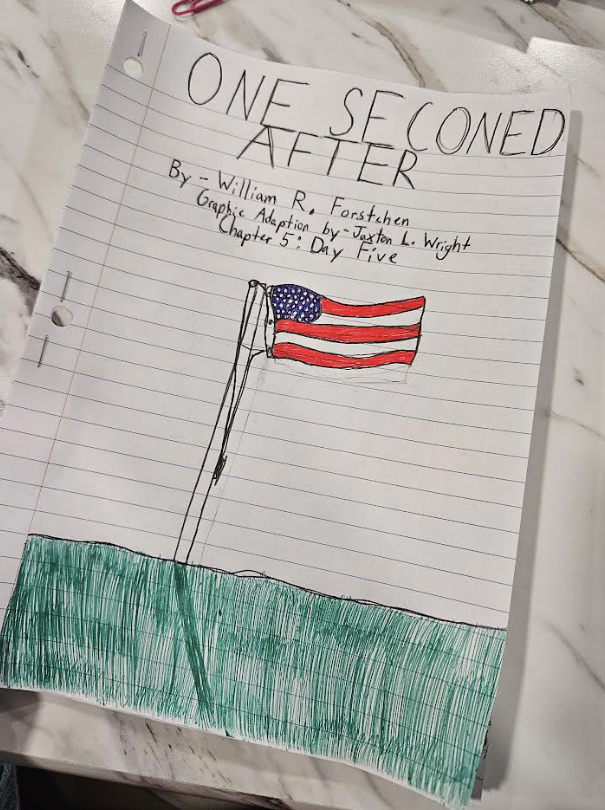 ONE SECONED
AFTER
By - William R. Forstchen
Graphic Adaption by - Jaxton L. Wright
Chapter 5: Day Five